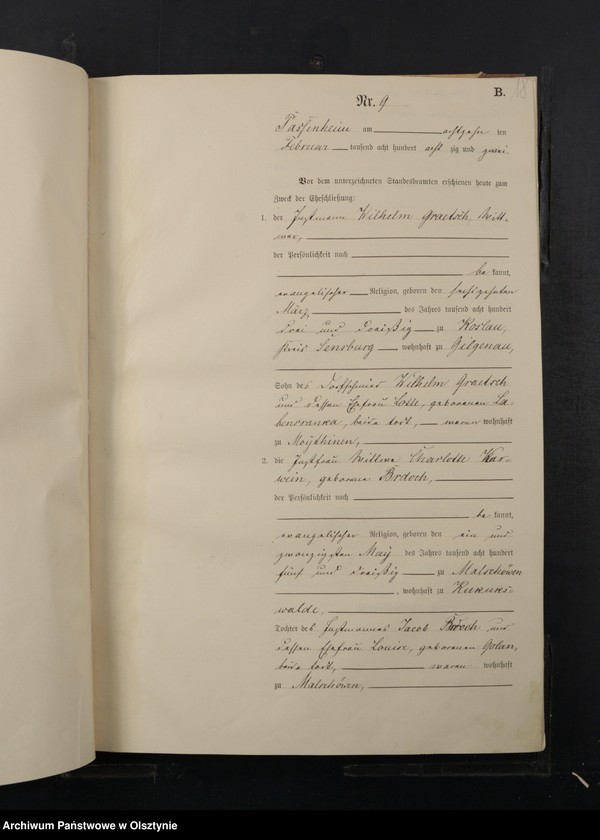 B. 18
Nr. 9
Passenheim am achtzehn ten
Februar tausend acht hundert acht zig und zwei.
Vor dem unterzeichneten Standesbeamten erschienen heute zum
Zweck der Eheschließung:
1. der Instmann Wilhelm Graetsch, Witt-
wer,
der Persönlichkeit nach
be kannt,
evangelischer Religion, geboren den sechszehnten
März, des Jahres tausend acht hundert
drei und dreißig zu Koslau,
Kreis Sensburg wohnhaft zu Gilgenau,
Sohn des Dorfschmied Wilhelm Graetsch
und dessen Ehefrau Lotte, geborenen La-
bencranka, beide todt, waren wohnhaft
zu Moythinen,
2. die Instfrau Wittwe Charlotte Kar-
wein, geborene Brdoch,
der Persönlichkeit nach
be kannt,
evangelischer Religion, geboren den ein und
zwanzigsten May des Jahres tausend acht hundert
fünf und dreißig zu Malschöwen
, wohnhaft zu Kukuks-
walde,
Tochter des Instmannes Jacob Brdoch und
dessen Ehefrau Louise, geborenen Golan,
beide todt, waren wohnhaft
zu Malschöwen,
Archiwum Państwowe w Olsztynie